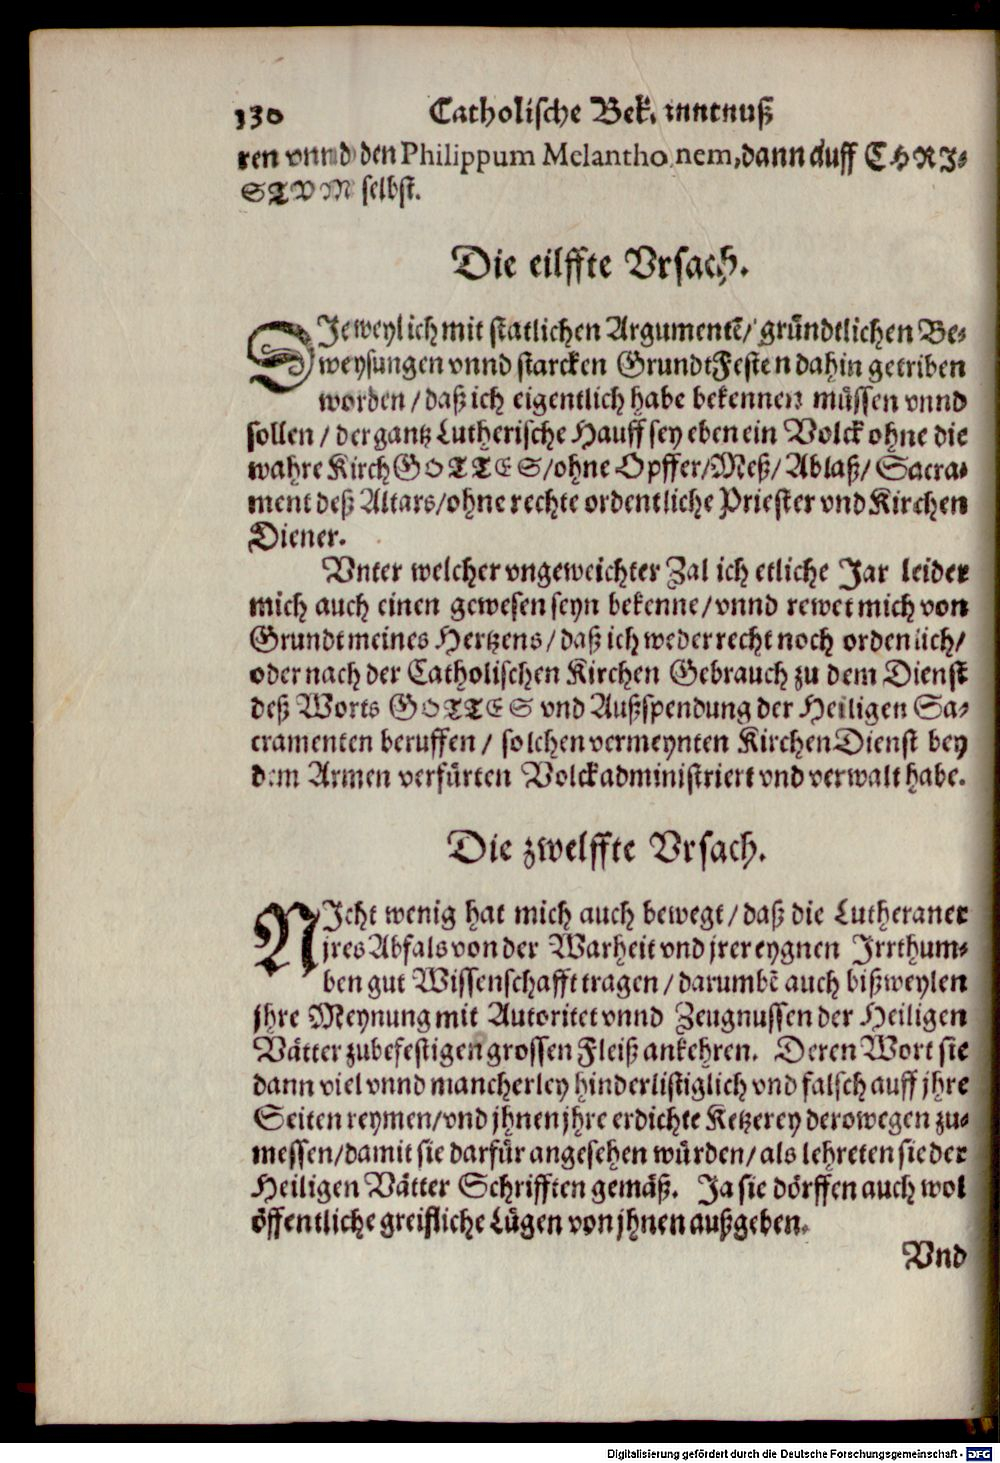 130 Catholische Bek. nntnuß
ren vnnd den Philippum Melanthonem, dann auff CHRI-
STVM selbst.
Die eilffte Vrsach.
DJeweyl ich mit statlichen Argumentē/ gründtlichen Be-
weysungen vnnd starcken GrundtFesten dahin getriben
worden / daß ich eigentlich habe bekennen müssen vnnd
sollen / der gantz Lutherische Hauff sey eben ein Volck ohne die
wahre Kirch GOTTES/ ohne Opffer/ Meß/ Ablaß/ Sacra-
ment deß Altars/ ohne rechte ordentliche Priester vnd Kirchen
Diener.
Vnter welcher vngeweichter Zal ich etliche Jar leider
mich auch einen gewesen seyn bekenne/ vnnd rewet mich von
Grundt meines Hertzens/ daß ich weder recht noch ordenlich/
oder nach der Catholischen Kirchen Gebrauch zu dem Dienst
deß Worts GOTTES vnd Außspendung der Heiligen Sa-
cramenten beruffen / solchen vermeynten KirchenDienst bey
dem Armen verfürten Volck administriert vnd verwalt habe.
Die zwelffte Vrsach.
NJcht wenig hat mich auch bewegt/ daß die Lutheraner
jres Abfals von der Warheit vnd jrer eygnen Jrrthum-
ben gut Wissenschafft tragen / darumbē auch bißweylen
jhre Meynung mit Autoritet vnnd Zeugnussen der Heiligen
Vätter zubefestigen grossen Fleiß ankehren. Deren Wort sie
dann viel vnnd mancherley hinderlistiglich vnd falsch auff jhre
Seiten reymen/ vnd jhnen jhre erdichte Ketzerey derowegen zu-
messen/ damit sie darfür angesehen würden/ als lehreten sie der
Heiligen Vätter Schrifften gemäß. Ja sie dörffen auch wol
öffentliche greifliche Lügen von jhnen außgeben.
Vnd
Digitalisierung gefördert durch die Deutsche Forschungsgemeinschaft - DFG